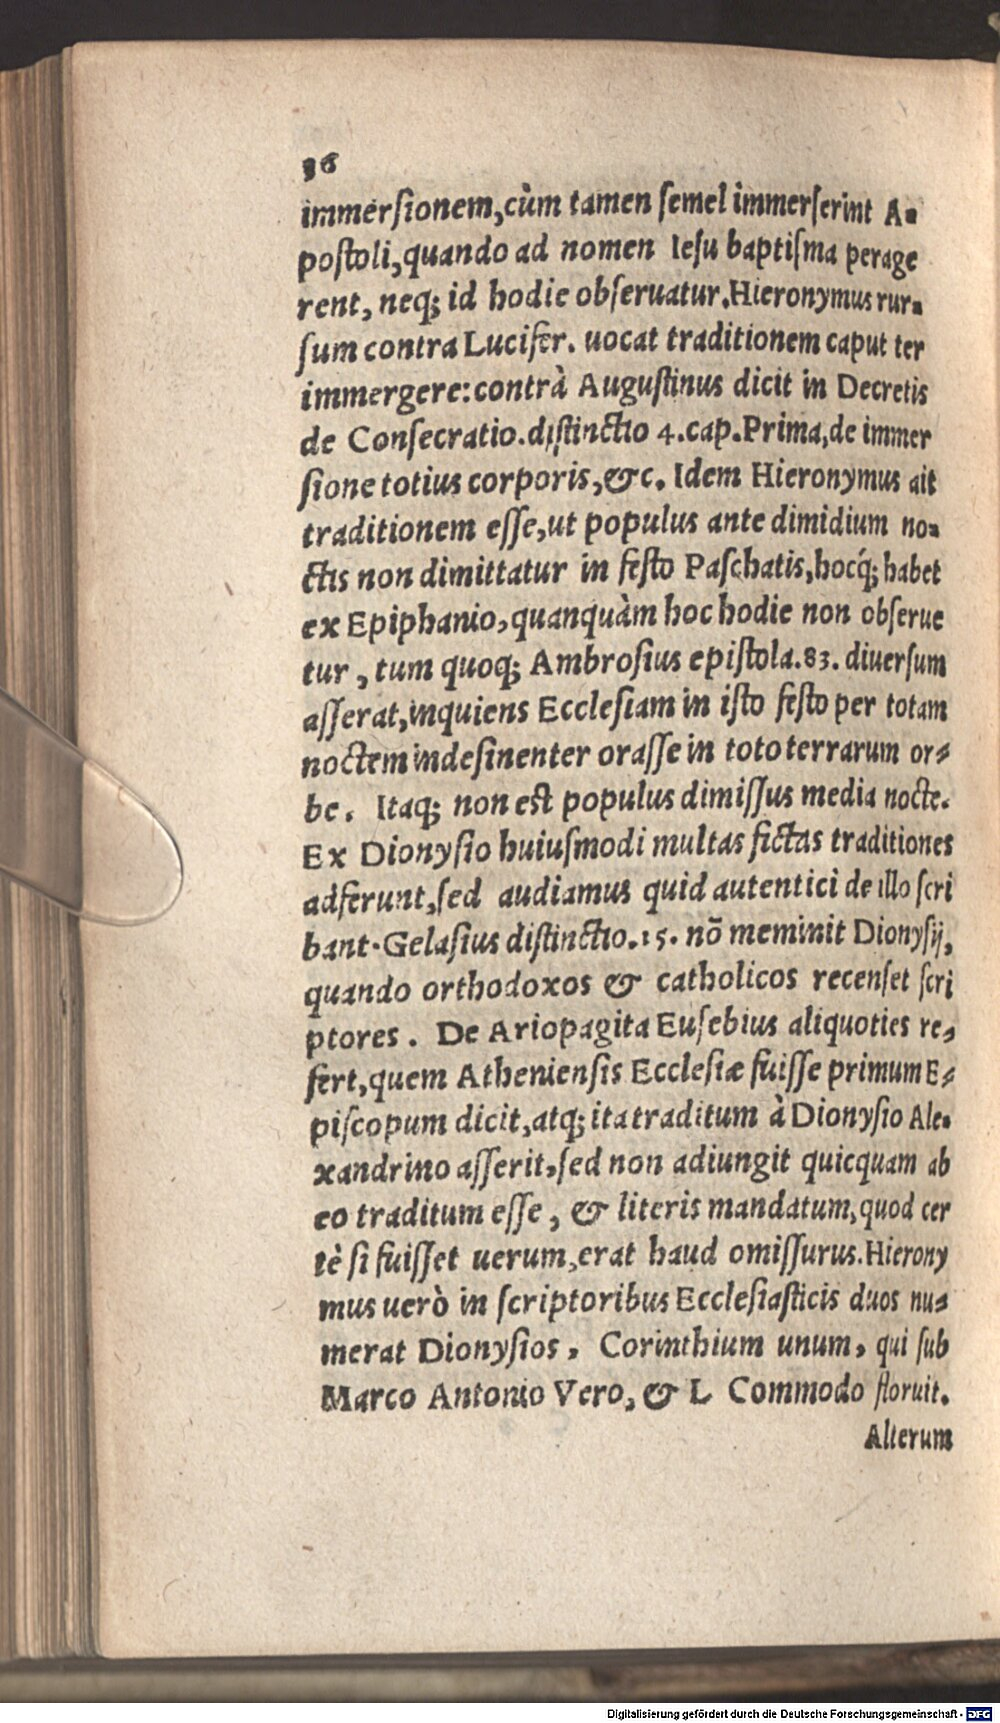 36
immersionem, cùm tamen semel immerserint A-
postoli, quando ad nomen Iesu baptisma perage
rent, neq; id hodie obseruatur. Hieronymus rur-
sum contra Lucifer. uocat traditionem caput ter
immergere: contrà Augustinus dicit in Decretis
de Consecratio. distinctio 4. cap. Prima, de immer
sione totius corporis, &c. Idem Hieronymus ait
traditionem esse, ut populus ante dimidium no-
ctis non dimittatur in festo Paschatis, hocq́; habet
ex Epiphanio, quanquàm hoc hodie non obserue
tur, tum quoq; Ambrosius epistola. 83. diuersum
asserat, inquiens Ecclesiam in isto festo per totam
noctem indesinenter orasse in toto terrarum or-
be. Itaq; non est populus dimissus media nocte.
Ex Dionysio huiusmodi multas fictas traditiones
adferunt, sed audiamus quid autentici de illo scri
bant. Gelasius distinctio. 15. nō meminit Dionysij,
quando orthodoxos & catholicos recenset scri
ptores. De Ariopagita Eusebius aliquoties re-
fert, quem Atheniensis Ecclesiæ fuisse primum E-
piscopum dicit, atq; ita traditum à Dionysio Ale-
xandrino asserit, sed non adiungit quicquam ab
eo traditum esse, & literis mandatum, quod cer
tè si fuisset uerum, erat haud omissurus. Hierony
mus uerò in scriptoribus Ecclesiasticis duos nu-
merat Dionysios, Corinthium unum, qui sub
Marco Antonio Vero, & L Commodo floruit.
Alterum
Digitalisierung gefördert durch die Deutsche Forschungsgemeinschaft - DFG